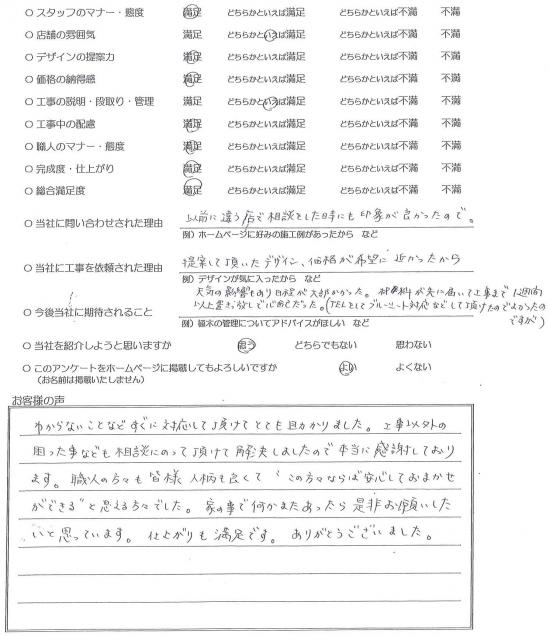 ○ スタッフのマナー・態度 満足 どちらかといえば満足 どちらかといえば不満 不満
○ 店舗の雰囲気 満足 どちらかといえば満足 どちらかといえば不満 不満
○ デザインの提案力 満足 どちらかといえば満足 どちらかといえば不満 不満
○ 価格の納得感 満足 どちらかといえば満足 どちらかといえば不満 不満
○ 工事の説明・段取り・管理 満足 どちらかといえば満足 どちらかといえば不満 不満
○ 工事中の配慮 満足 どちらかといえば満足 どちらかといえば不満 不満
○ 職人のマナー・態度 満足 どちらかといえば満足 どちらかといえば不満 不満
○ 完成度・仕上がり 満足 どちらかといえば満足 どちらかといえば不満 不満
○ 総合満足度 満足 どちらかといえば満足 どちらかといえば不満 不満
○ 当社に問い合わせされた理由 以前に違う店で相談をした時にも印象が良かったので。
例）ホームページに好みの施工例があったから など
○ 当社に工事を依頼された理由 提案して頂いたデザイン、価格が希望に近かったから
例）デザインが気に入ったから など
天気の影響もあり日程が大部かかった。材料が先に届いて工事まで1週間
○ 今後当社に期待されること 以上置き放しで心配だった。（TELをしてブルーシート対応などして頂けたのでよかったの
ですが）
例）植木の管理についてアドバイスがほしい など
○ 当社を紹介しようと思いますか 思う どちらでもない 思わない
○ このアンケートをホームページに掲載してもよろしいですか よい よくない
（お名前は掲載いたしません）
お客様の声
わからないことなどすぐに対応して頂けてとても助かりました。工事以外の
困った事なども相談にのって頂けて解決しましたので本当に感謝しており
ます。職人の方々も皆様人柄も良くて"この方々ならば安心しておまかせ
ができる"と思える方々でした。家の事で何かまたあったら是非お願いした
いと思っています。仕上がりも満足です。ありがとうございました。